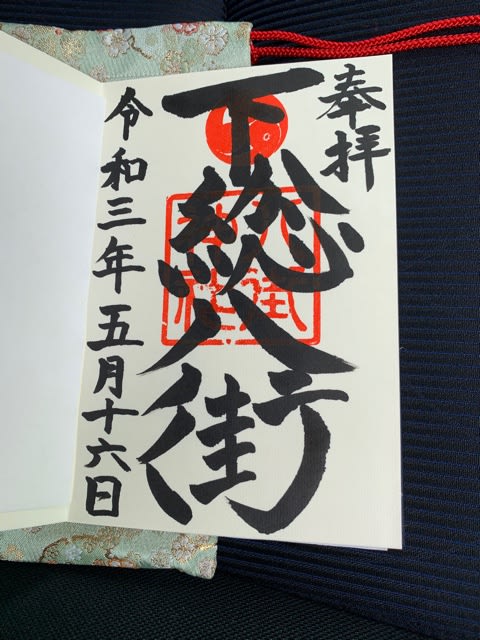 奉拝
下総八街
令和三年五月十六日